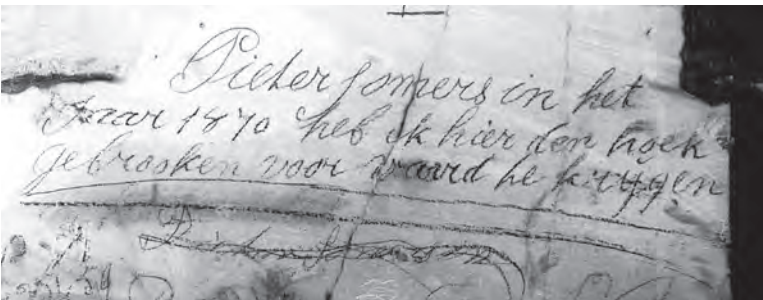 Pieter Somers in het
Jaar 1870 heb ik hier den hoek
gebrooken voor vaard te krijgen